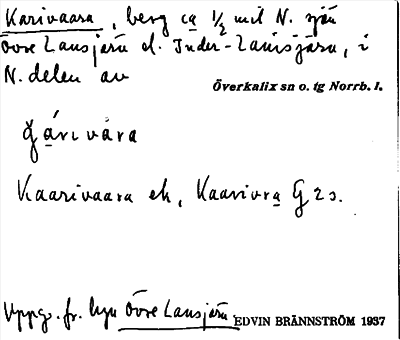 Karivaara, berg ca 1/2 mil N. sjön
Övre Lansjärv el. Inder-Lansjärv, i
N. delen av
Överkalix sn o. tg Norrb. l.
gárivāra
Kaarivaara ek, Kaarivra G 2 s.
Uppg. fr. byn Övre Lansjärv
EDVIN BRÄNNSTRÖM 1937